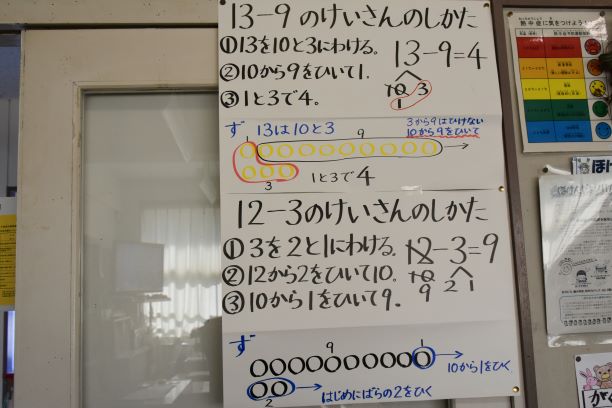 13-9のけいさんのしかた
①13を10と3にわける。
13-9=4
②10から9をひいて1.
10 3
③1と3で4。
1
ず 13は10と3
3から9はひけない
10から9をひいて
1 9
3
1と3で4
12-3のけいさんのしかた
①3を2と1にわける。
12-3=9
②12から2をひいて10.
10 2 1
③10から1をひいて9.
9
ず
9 1
10から1をひく
2
はじめにばらの2をひく
熱中症に気をつけよう!